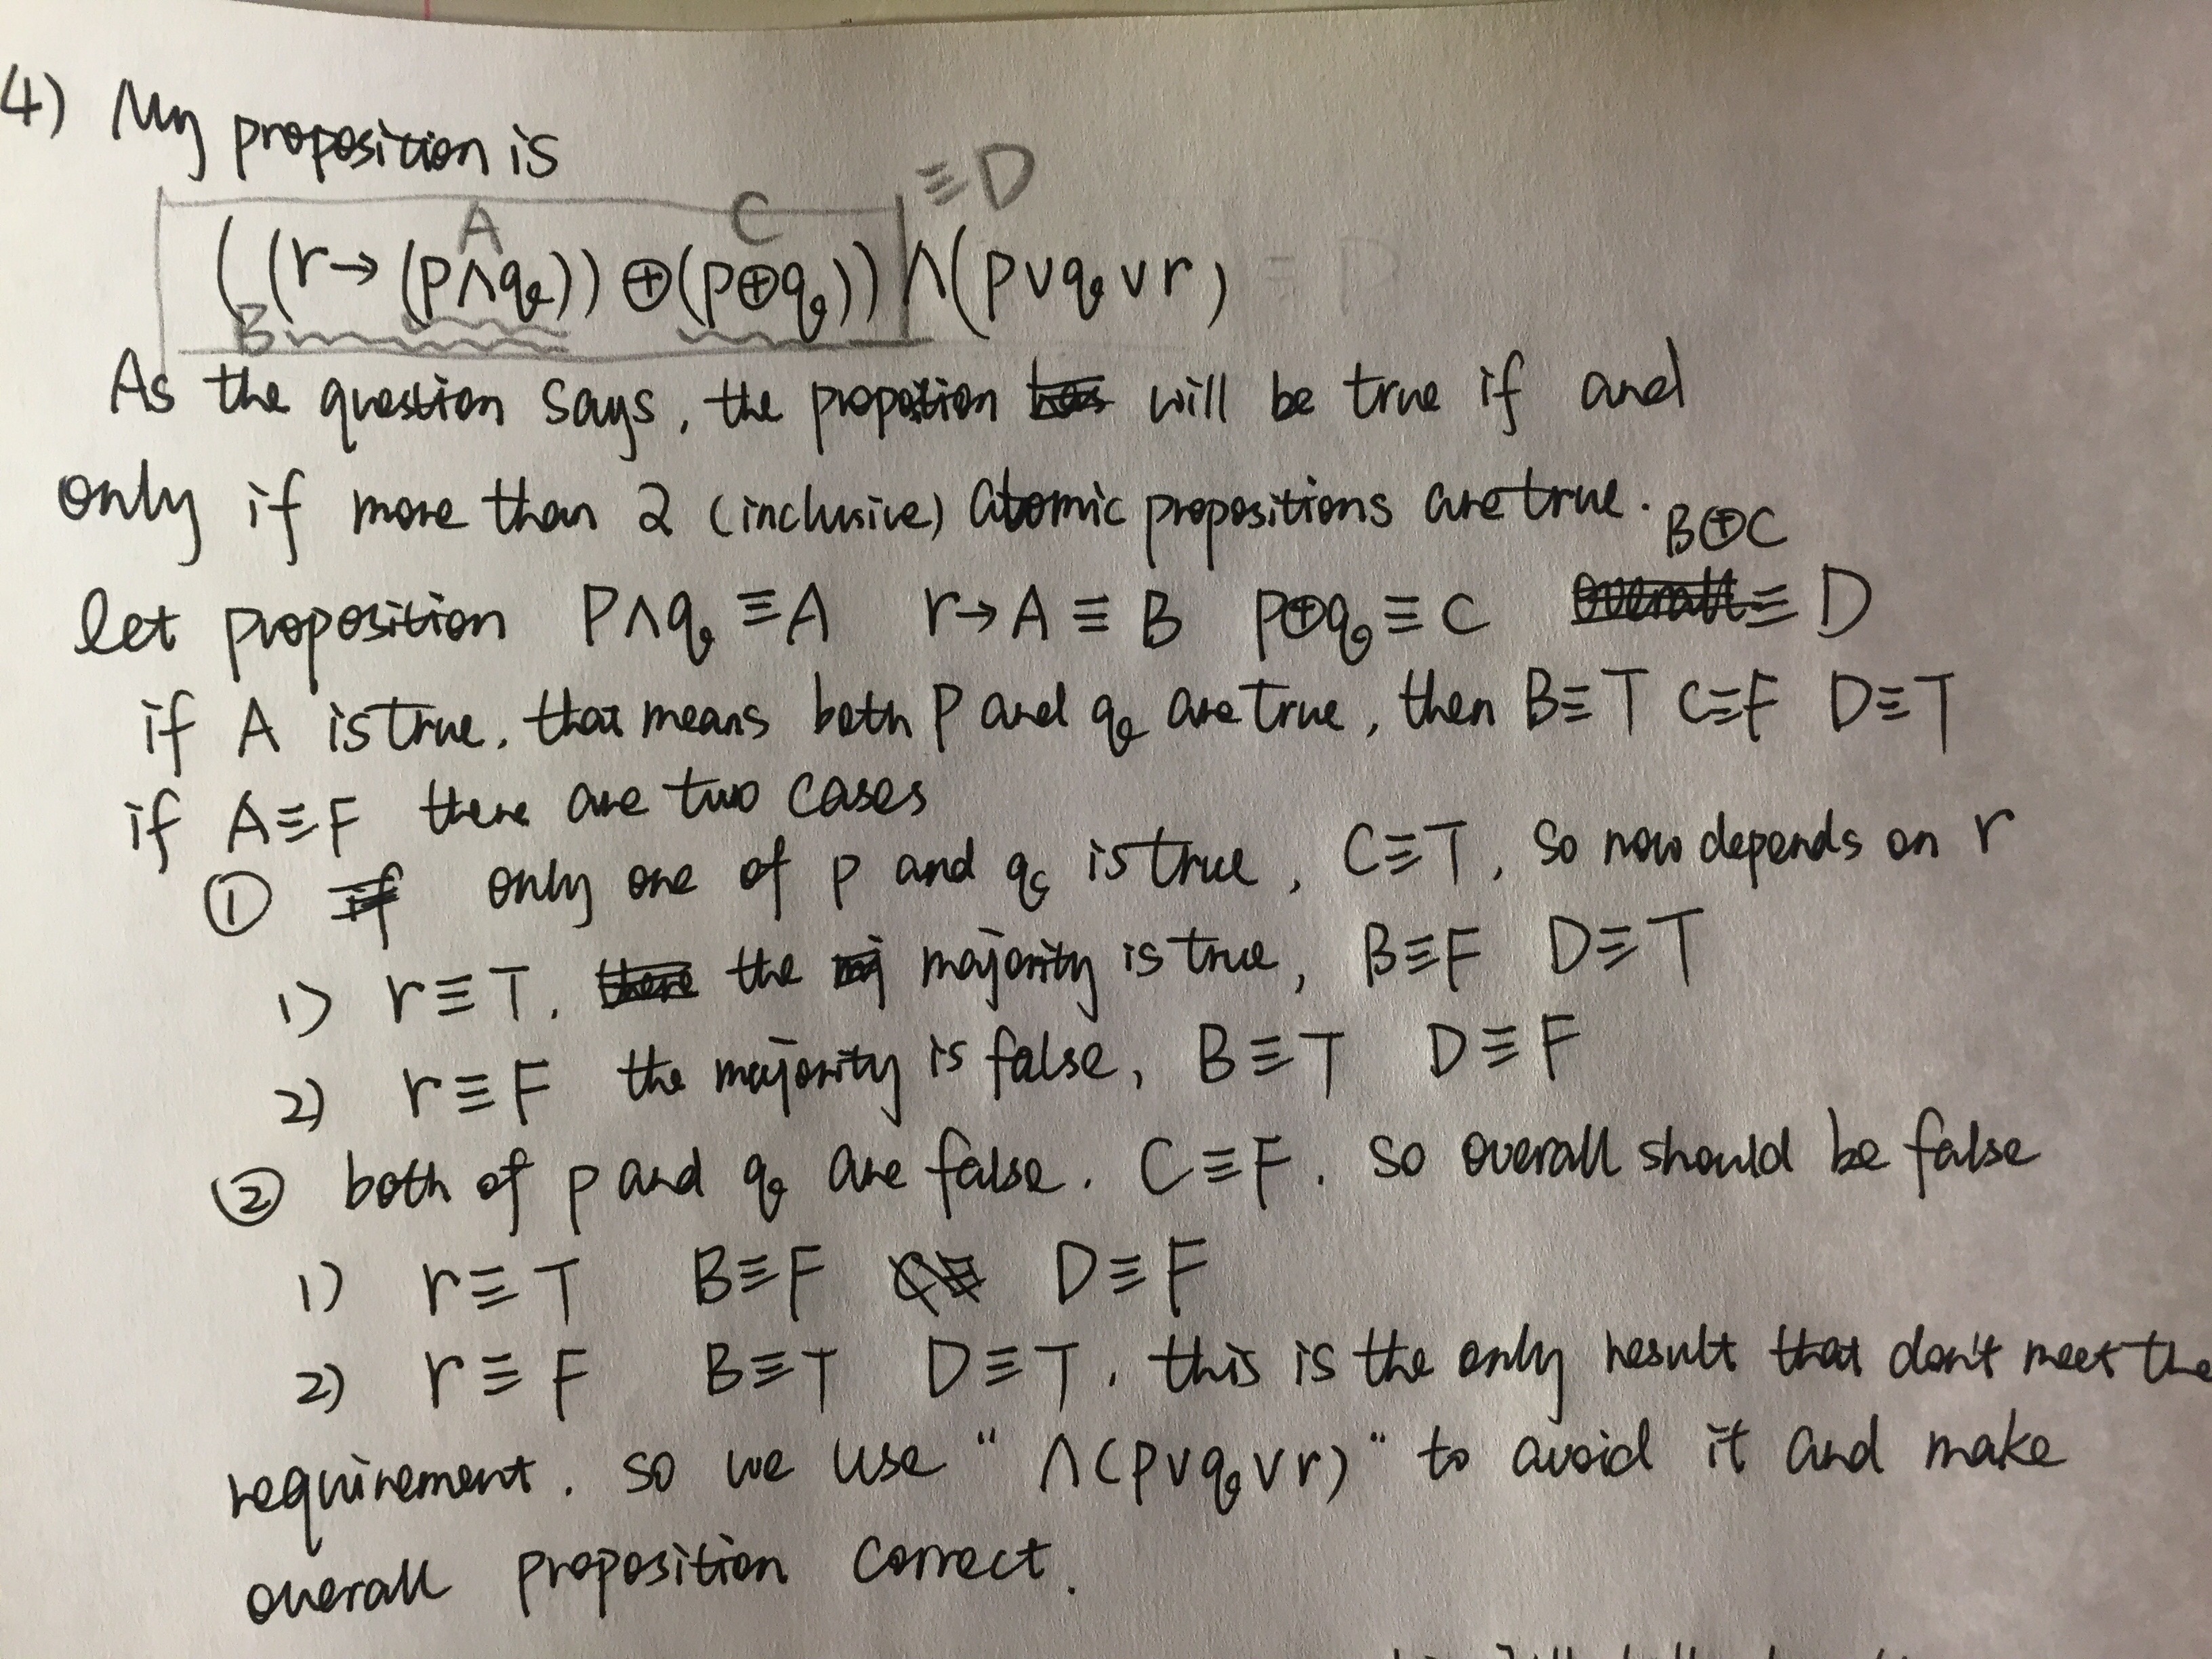 4) My proposition is
A C ≡D
((r→(p∧q))⊕(p⊕q))∧(p∨q∨r)
B
As the question says, the propostion will be true if and
only if more than 2 (inclusive) atomic propositions are true.
B⊕C
let proposition P∧q≡A r→A≡B p⊕q≡C ≡D
if A is true, that means both P and q are true, then B≡T C≡F D≡T
if A≡F there are two cases
① only one of p and q is true, C≡T, so now depends on r
1) r≡T, the majority is true, B≡F D≡T
2) r≡F the majority is false, B≡T D≡F
② both of p and q are false. C≡F. so overall should be false
1) r≡T B≡F D≡F
2) r≡F B≡T D≡T, this is the only result that don't meet the
requirement. so we use "∧(p∨q∨r)" to avoid it and make
overall proposition correct.